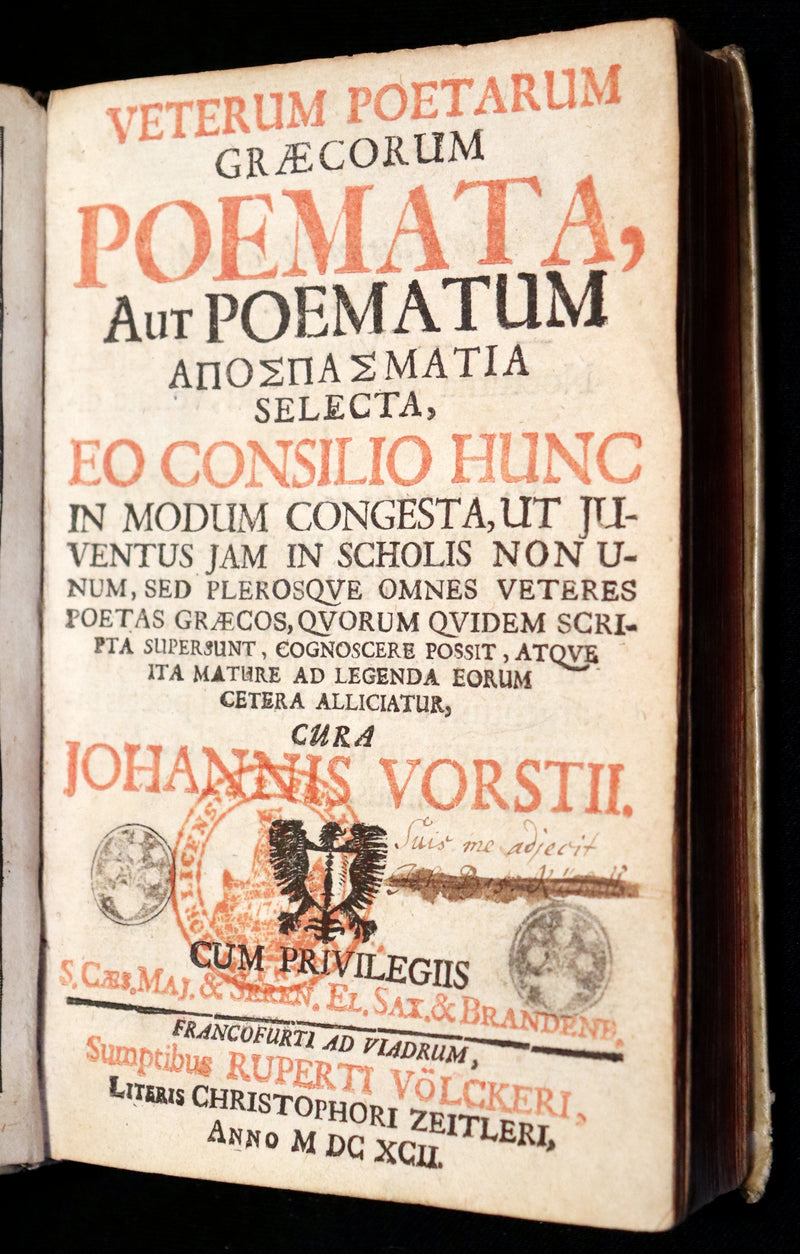 VETERUM POETARUM
GRÆCORUM
POEMATA,
AUT POEMATUM
ΑΠΟΣΠΑΣΜΑΤΙΑ
SELECTA,
EO CONSILIO HUNC
IN MODUM CONGESTA, UT JU-
VENTUS JAM IN SCHOLIS NON U-
NUM, SED PLEROSQVE OMNES VETERES
POETAS GRÆCOS, QVORUM QVIDEM SCRI-
PTA SUPERSUNT, COGNOSCERE POSSIT, ATQVE
ITA MATURE AD LEGENDA EORUM
CETERA ALLICIATUR,
CURA
JOHANNIS VORSTII.
Suis me adjecit
CUM PRIVILEGIIS
S. CÆS. MAJ. & SEREN. EL. SAX. & BRANDENB.
FRANCOFURTI AD VIADRUM,
Sumptibus RUPERTI VÖLCKERI,
LITERIS CHRISTOPHORI ZEITLERI,
ANNO M DC XCII.